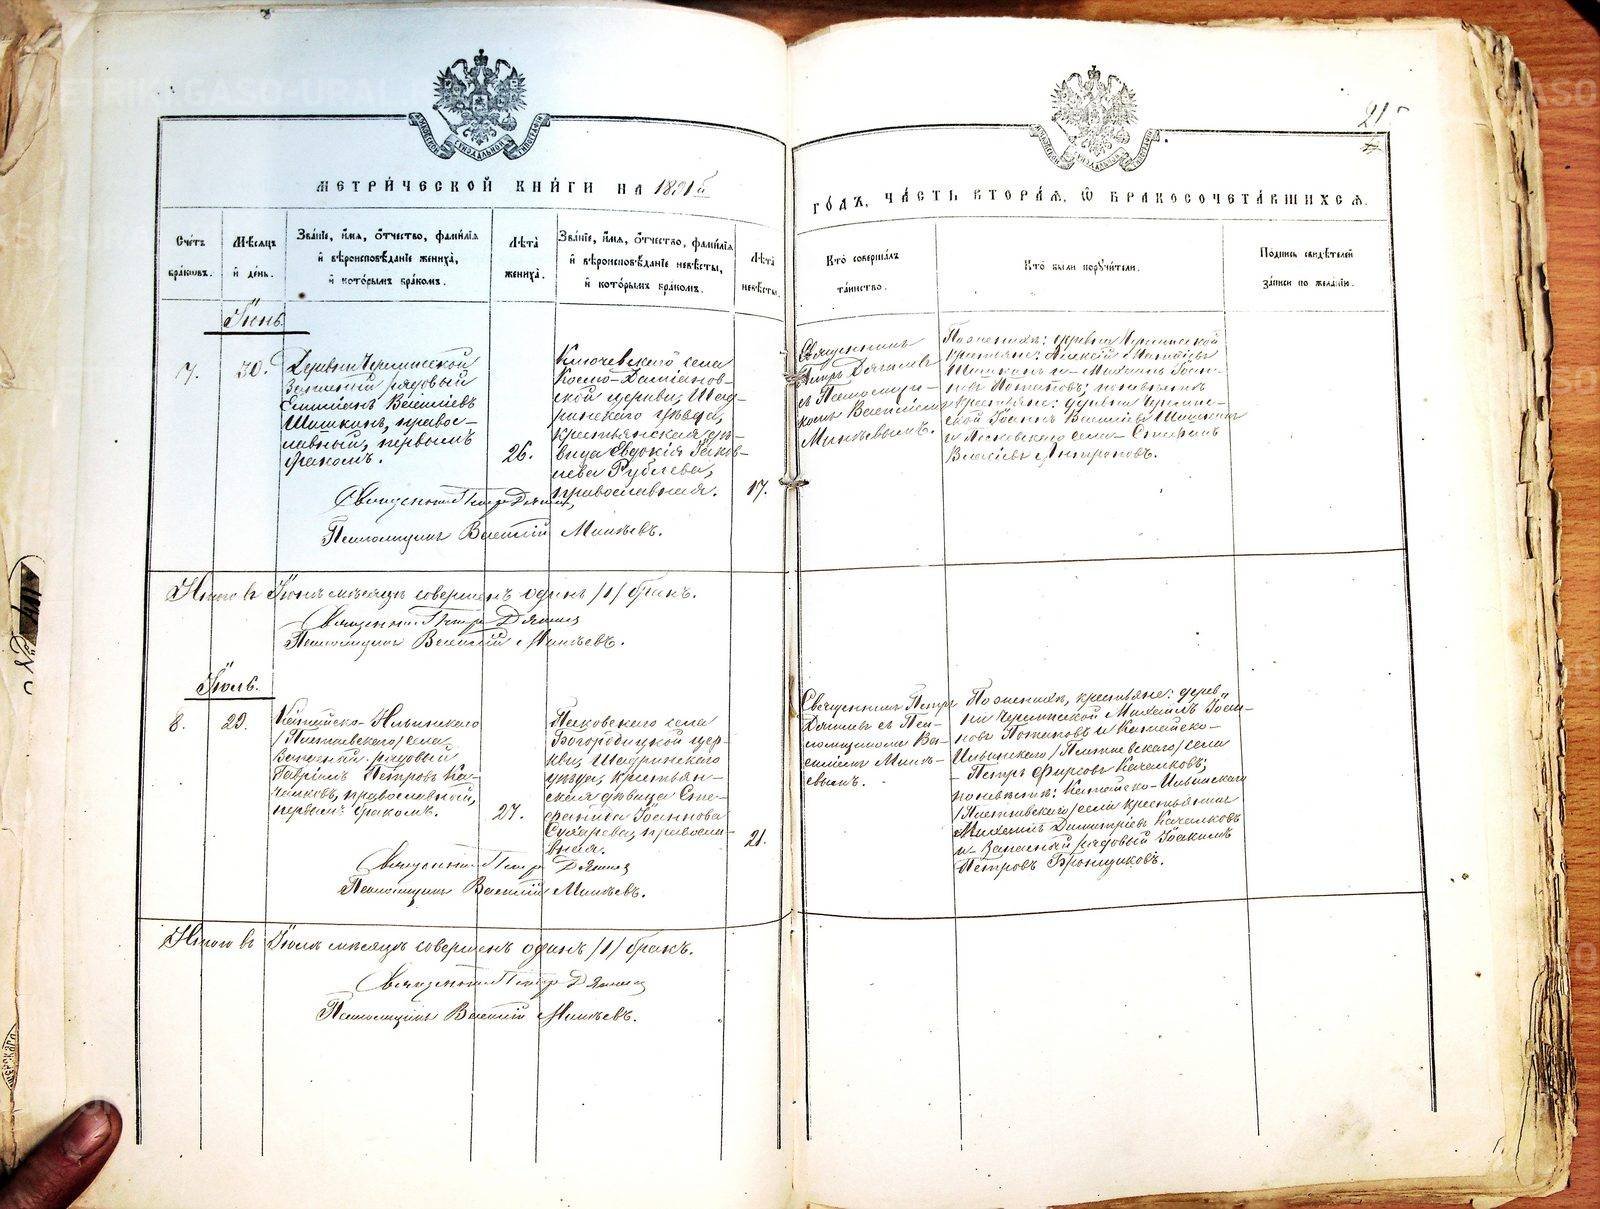 МЕТРИ́ЧЕСКОЙ КНИ́ГИ НА 1891й
ГО́ДЪ, ЧА́СТЬ ВТОРА́Я, Ѽ БРАКОСОЧЕТА́ВШИХСЯ.
21
Сче́тъ бра́ковъ.
Мѣ́сяцъ и де́нь.
Зва́нїе, и́мя, ѻ́тчество, фами́лїя и вѣроисповѣ́данїе жениха̀, и кото́рымъ бра́комъ.
Лѣ́та жениха̀.
Зва́нїе, и́мя, ѻ́тчество, фами́лїя и вѣроисповѣ́данїе невѣ́сты, и кото́рымъ бра́комъ.
Лѣ́та невѣ́сты.
Кто̀ соверша́лъ та́инство.
Кто̀ бы́ли порꙋчи́тели.
По́дпись свидѣ́телей за́писи по жела́нїю.
Іюнь.
7. 30.
Деревни Черемисской
Запасный рядовый
Емилiанъ Васильевъ
Шишкинъ, право-
славный, первымъ
бракомъ.
26.
Ключевскаго села
Космо-Дамiанов-
ской церкви, Шад-
ринскаго уѣзда,
крестьянская дѣ-
вица Евдокiя Іаков-
лева Рублева,
православная.
17.
Священникъ
Петръ
съ Псаломщи-
комъ Василiемъ
Минѣевымъ.
По женихѣ: деревни Черемисской
крестьяне: Алексiй
Шишкинъ и Михаилъ Іоан-
новъ Потаповъ; по невѣстѣ
крестьяне: деревни Черемис-
ской Іоаннъ Василiевъ Шишкинъ
и села Стефанъ
Антроповъ.
Священникъ Петръ
Псаломщикъ Василiй Минѣевъ.
Итого въ Іюнѣ мѣсяцѣ совершенъ одинъ /1/ бракъ.
Священникъ Петръ
Псаломщикъ Василiй Минѣевъ.
Іюль.
8. 29.
Катайско-Ильинскаго
села
Запасный рядовый
Гаврiилъ Петровъ Ка-
чалковъ, православный,
первымъ бракомъ.
27.
Песковскаго села
Богородицкой цер-
кви, Шадринскаго
уѣзда, крестьян-
ская дѣвица Сте-
фанида Іоаннова
Сухарева, правосла-
вная.
21.
Священникъ Петръ
съ Пса-
ломщикомъ Ва-
силiемъ Минѣ-
евымъ.
По женихѣ, крестьяне: дерев-
ни Черемисской Михаилъ Іоан-
новъ Потаповъ и Катайско-
Ильинскаго села
Петръ Фирсовъ Качалковъ;
по невѣстѣ: Катайско-Ильинскаго
села крестьянинъ
Михаилъ Димитрiевъ Качалковъ
и Запасный рядовый Іоакимъ
Петровъ Бронниковъ.
Священникъ Петръ
Псаломщикъ Василiй Минѣевъ.
Итого въ Іюлѣ мѣсяцѣ совершенъ одинъ /1/ бракъ.
Священникъ Петръ
Псаломщикъ Василiй Минѣевъ.